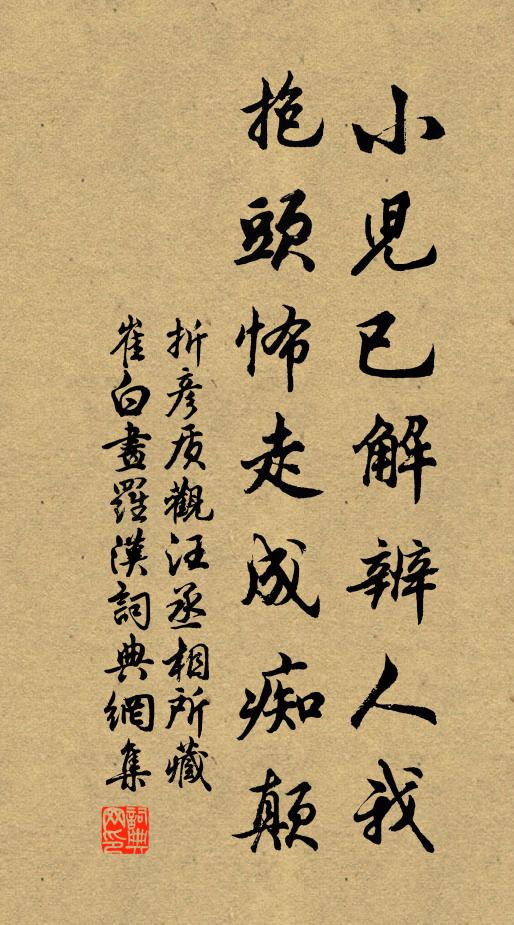 小児已解辨人我
抱頭怖走成痴顛
折彦质觀汪丞相所藏
崔白畫羅漢詞典網集
詞典
网印